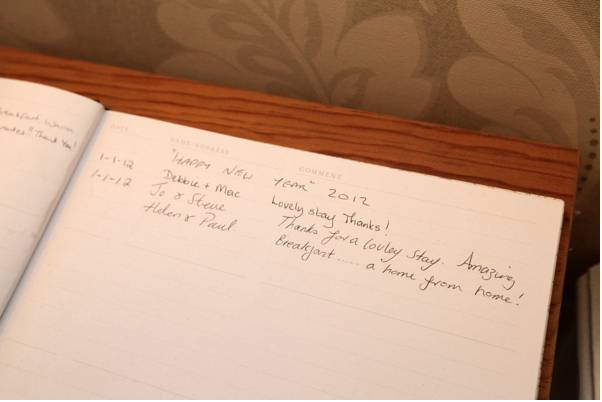 Breakfast Warm
Thank You!
DATE NAME/ADDRESS COMMENT
"HAPPY NEW YEAR" 2012
1-1-12 Debbie + Mac Lovely stay Thanks!
1-1-12 Jo & Steve Thanks for a lovley stay. Amazing
Helen & Paul Breakfast..... a home from home!